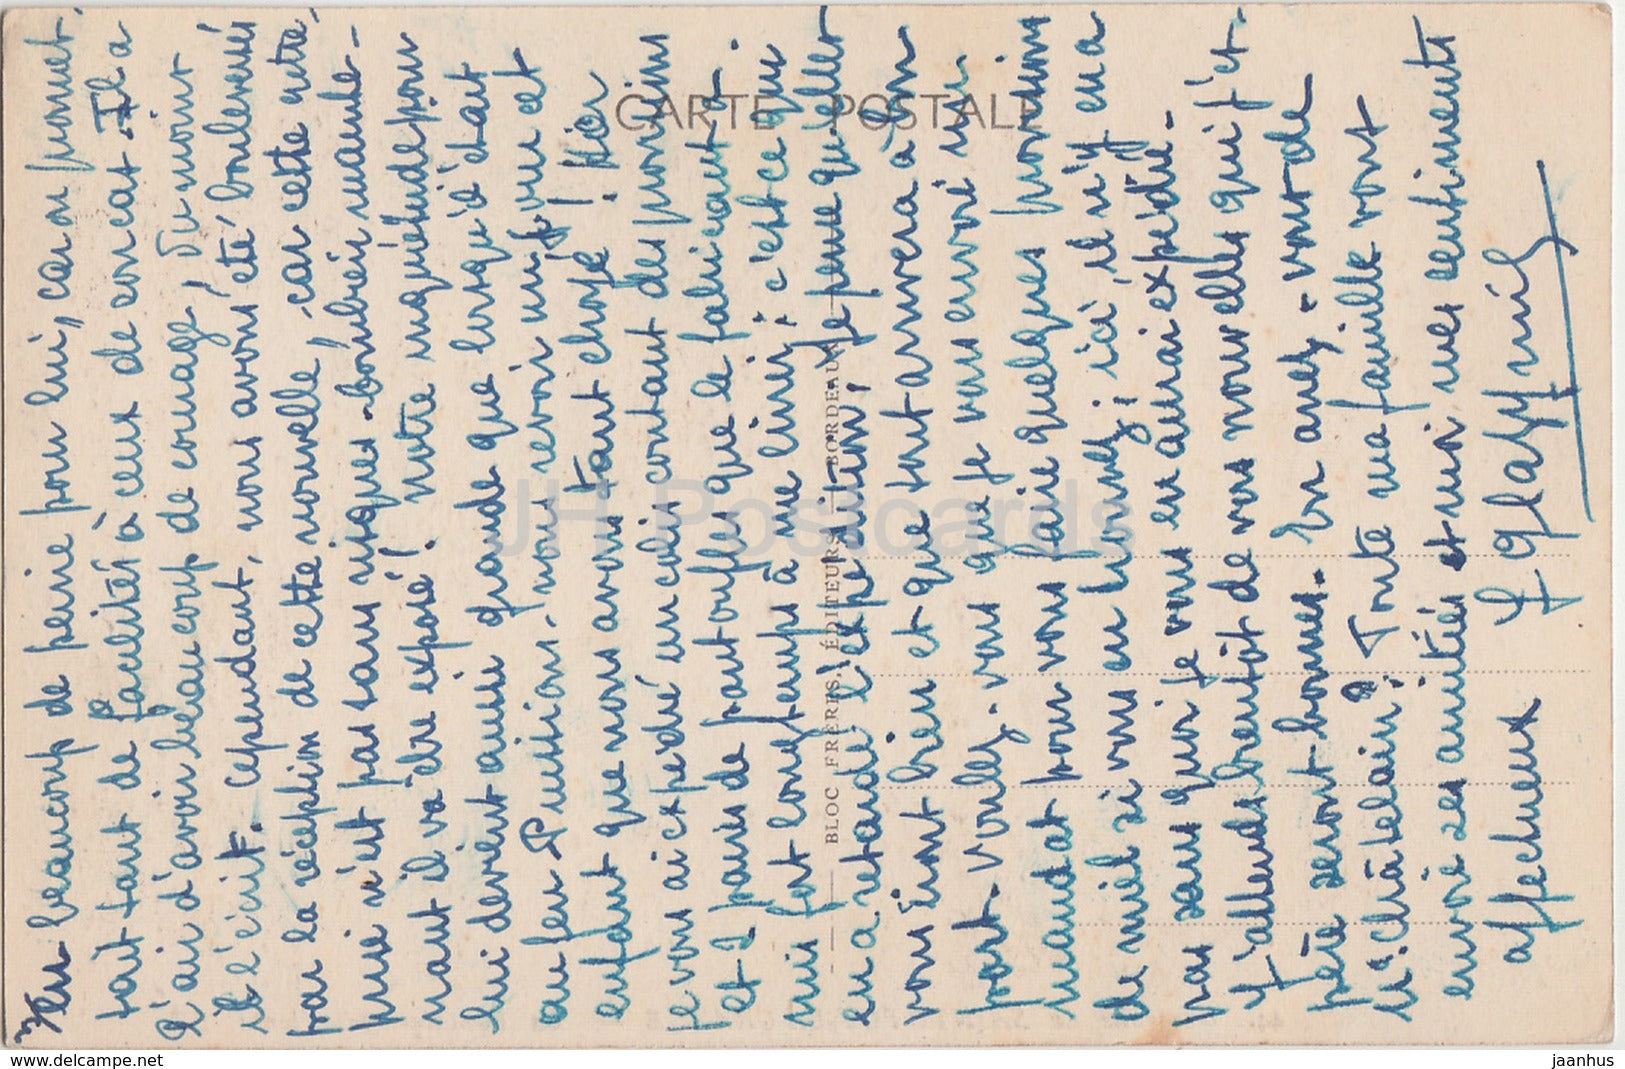 en beaucoup de peine pour lui, car on promet
tait tant de facilités à ceux de son cas. Il a
l'air d'avoir beaucoup de courage, du moins
il l'écrit. Cependant, nous avons été bouleversés
par la réception de cette nouvelle, car cette entre,
prise n'est pas sans risques
nant il va être exposé! Notre inquiétude pour
lui devient aussi grande que lorsqu'il était
au feu. Puissions-nous revoir un jour cet
enfant que nous avons tant choyé! Hier
je vous ai expédié un colis contenant des provisions
et 2 paires de pantoufles que le fabricant a
mis fort longtemps à me livrer; c'est ce qui
en a retardé l'expédition; Je pense qu'elles
vous iront bien et que tout arrivera à bon
port. Voulez-vous que je vous envoie un
mandat pour vous faire quelques provisions
de miel si vous en trouvez; ici, il n'y en a
pas sans quoi je vous en aurais expédié.
J'attends bientôt de vos nouvelles qui j'es-
père seront bonnes. En avez-vous de
Mr. Châtelain? Toute ma famille vous
envoie ses amitiés et moi mes sentiments
affectueux
CARTE POSTALE
BLOC FRÈRES, ÉDITEURS — BORDEAUX
JH Postcards
my.delcampe.net
jaanhus